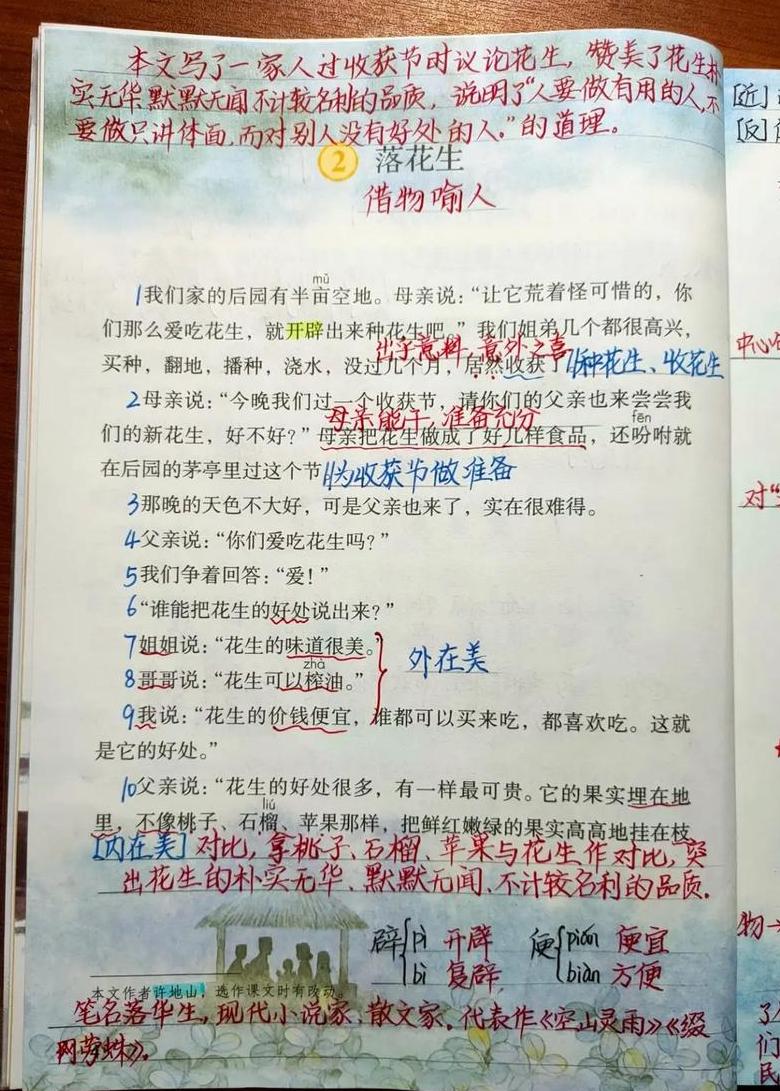 本文写了一家人过收获节时议论花生，赞美了花生朴
实无华默默无闻不计较名利的品质，说明了“人要做有用的人，不
要做只讲体面，而对别人没有好处的人。”的道理。
2 落花生
借物喻人
mǔ
1我们家的后园有半亩空地。母亲说：“让它荒着怪可惜的，你
们那么爱吃花生，就开辟出来种花生吧。”我们姐弟几个都很高兴，
出乎意料 意外之喜
买种，翻地，播种，浇水，没过几个月，居然收获了‖种花生、收花生
2母亲说：“今晚我们过一个收获节，请你们的父亲也来尝尝我
母亲能干，准备充分
fēn
们的新花生，好不好？”母亲把花生做成了好几样食品，还吩咐就
在后园的茅亭里过这个节‖为收获节做准备
3那晚的天色不大好，可是父亲也来了，实在很难得。
4父亲说：“你们爱吃花生吗？”
5我们争着回答：“爱！”
6“谁能把花生的好处说出来？”
7姐姐说：“花生的味道很美。”
外在美
zhà
8哥哥说：“花生可以榨油。”
9我说：“花生的价钱便宜，谁都可以买来吃，都喜欢吃。这就
是它的好处。”
10父亲说：“花生的好处很多，有一样最可贵。它的果实埋在地
liú
里，不像桃子、石榴、苹果那样，把鲜红嫩绿的果实高高地挂在枝
[内在美]对比，拿桃子、石榴、苹果与花生作对比，突
出花生的朴实无华、默默无闻、不计较名利的品质。
辟 pì 开辟 便 pián 便宜
bì 复辟 biàn 方便
本文作者许地山，选作课文时有改动。
笔名落华生，现代小说家、散文家。代表作《空山灵雨》《缀
网劳蛛》。
[近]
[反]
中心
对“
物一
了
们
民